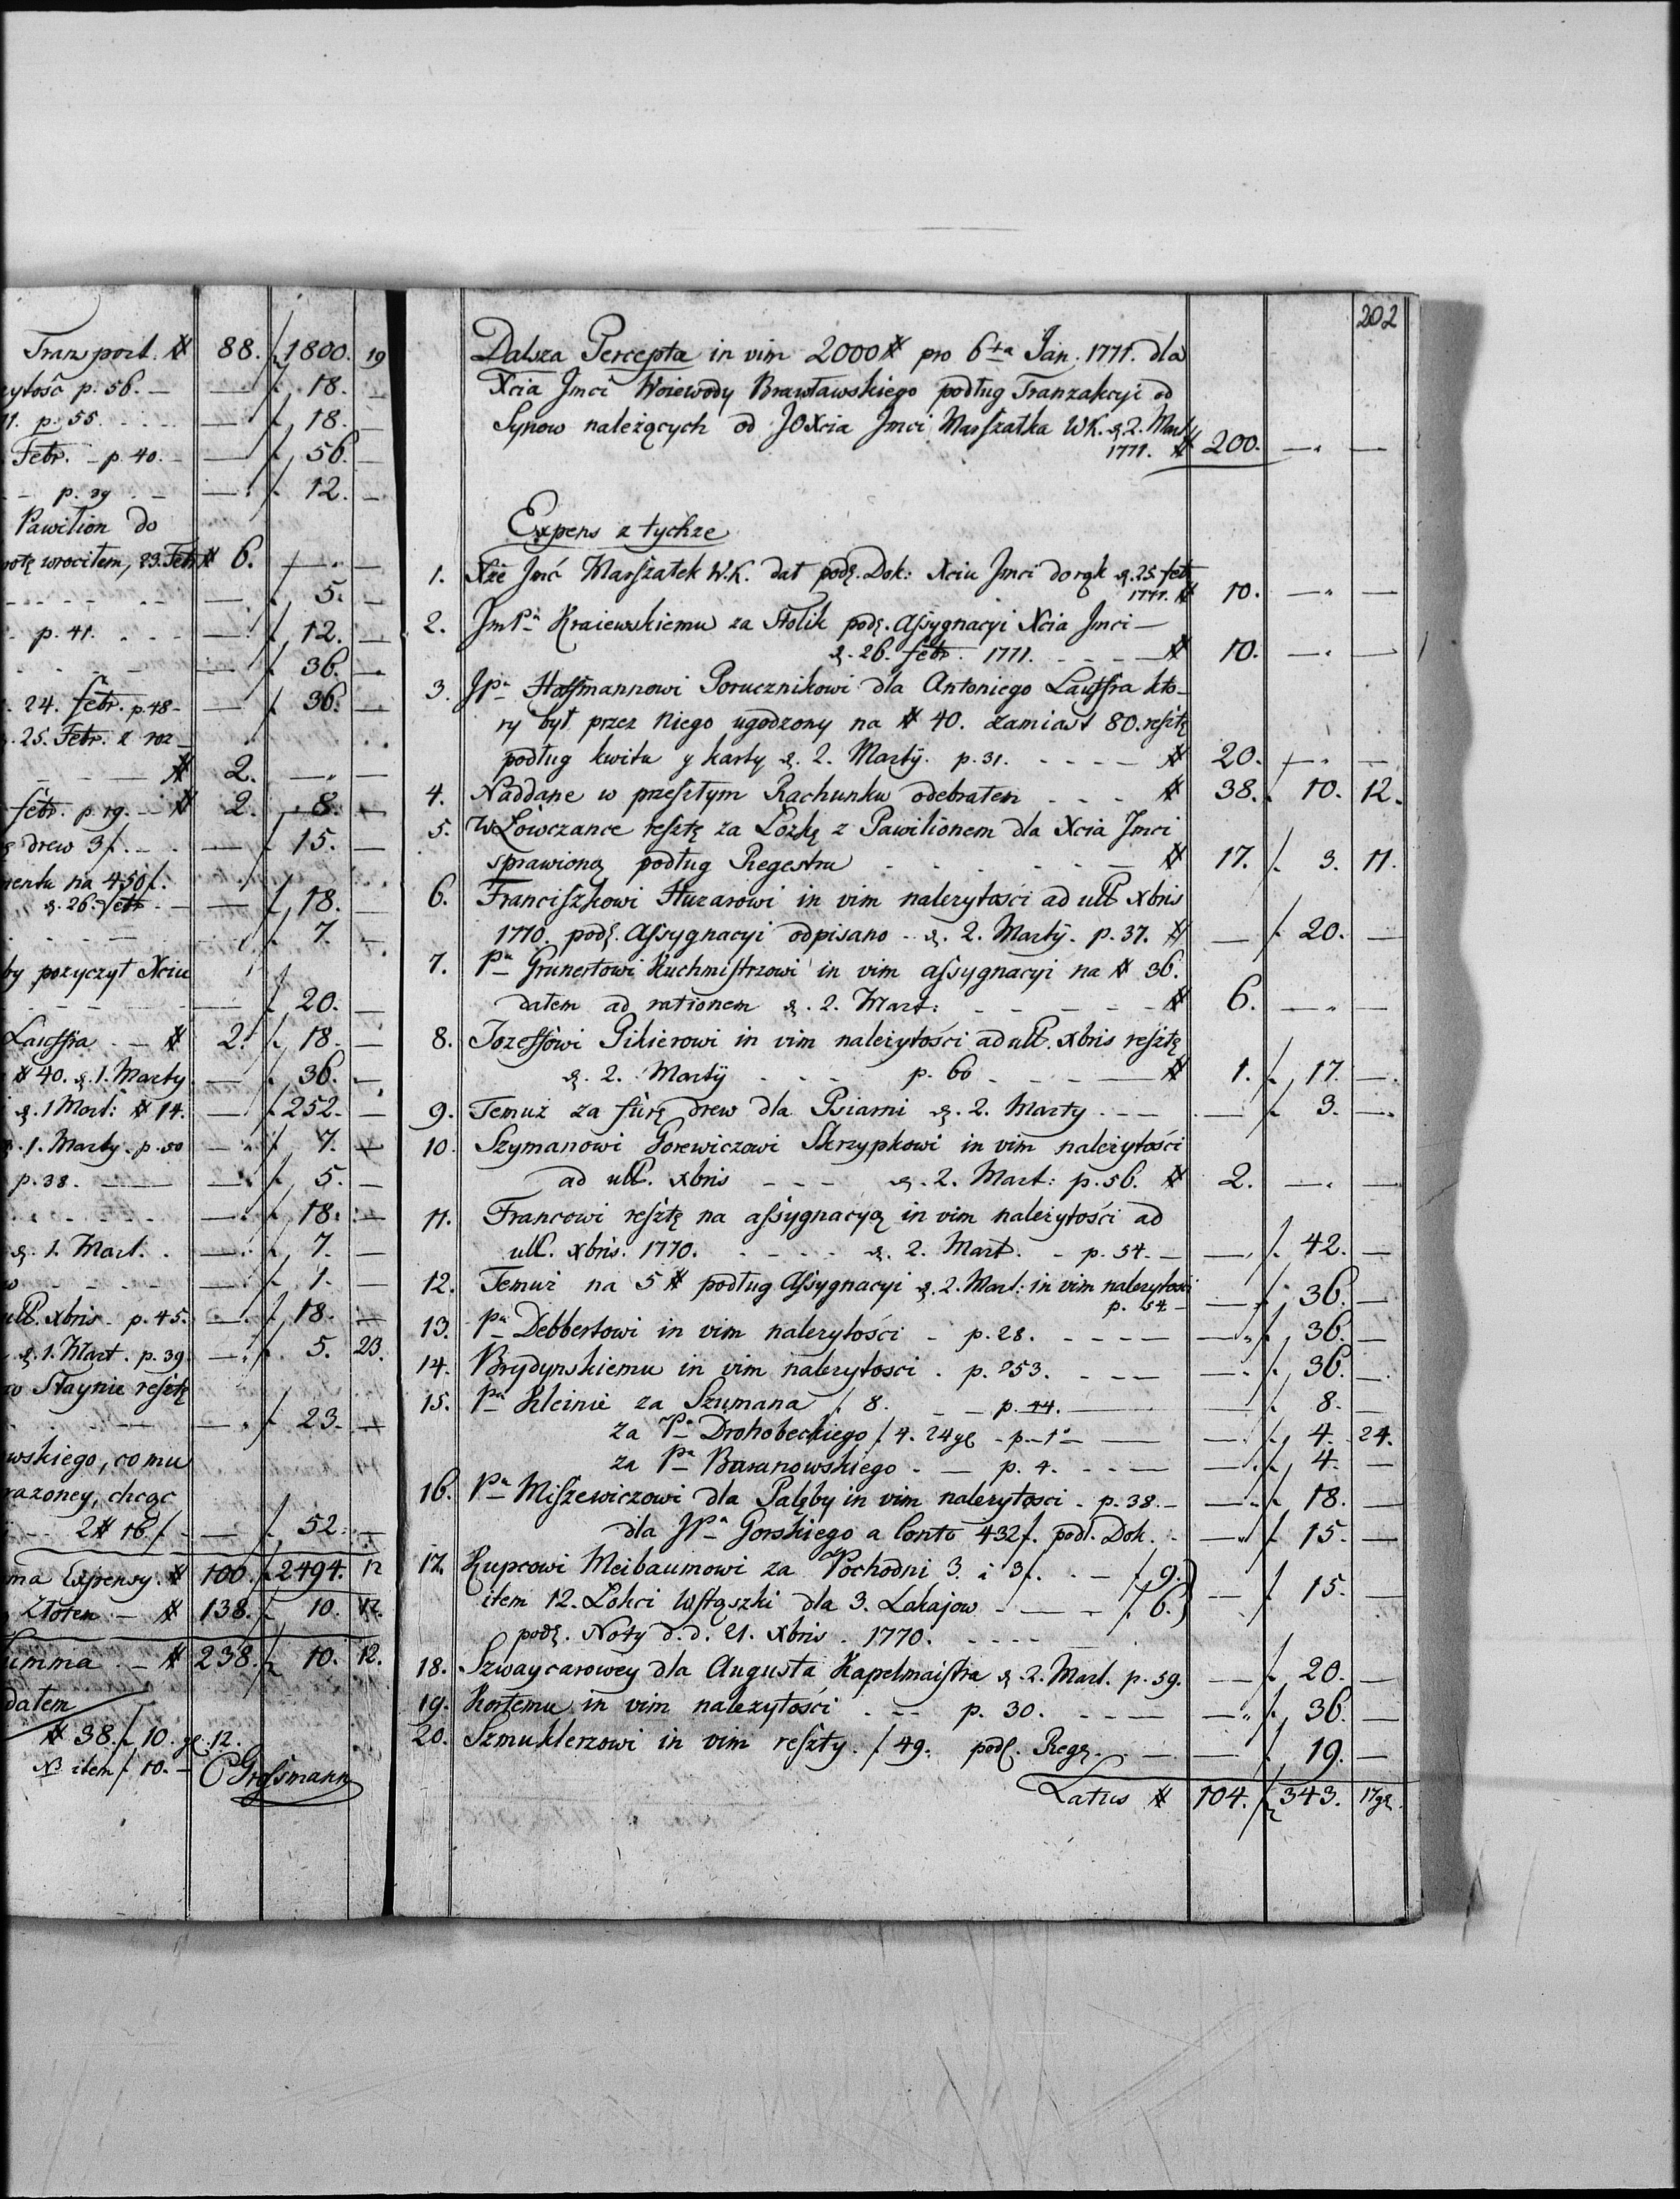 Transport. # 88. f 1800. 19
zytość p. 56. — — f. 18. —
71. p. 55. — f. 18. —
Febr. - p. 40. — — f. 56. —
- p. 39 . — — f. 12. —
Pawilion do
potę wrociłem, 23. Febr # 6. — —
— f. 5. —
- p. 41. — f. 12. —
— f. 36. —
24. febr. p. 48 - — f. 36. —
25. Febr. z roz
— # 2. — —
febr. p. 19. — # 2. . 8. —
drew 3 f. — — f. 15. —
mentu na 450 f.
d. 26. Febr — — f. 18. —
— f. 7. —
by pozyczył Xciu
— f. 20. —
Lauffra — # 2. f. 18. —
# 40. d. 1. Marty — f. 36. —
d. 1 Mart: # 14. — f. 252. —
d. 1. Marty. p. 50 — f. 7. —
p. 38. — — f. 5. —
— f. 18. —
d. 1. Mart. . — f. 7. —
— f. 1. —
ult. xbris - p. 45. — f. 18. —
d. 1. Mart. p. 39. — f. 5. 23.
Staynie resztę
— f. 23. —
wskiego, co mu
razoney, chcąc
- 2 # 16 f. — f. 52. —
ma Expensy. # 100. f. 2494. 12
Złoten — # 138. f. 10. 12.
Summa — # 238. f. 10. 12.
dałem
# 38. f. 10. gl. 12.
item f. 10. —
C Grossmann
202
Dalsza Percepta in vim 2000 # pro 6ta Jan. 1771. dla
Xcia Jmci Woiewody Bracławskiego podług Tranzakcyi od
Synow należących od JOXcia Jmci Marszałka WK. d. 2. Mart
1771. # 200. — —
Expens z tychze
1. Xże Jmć Marszałek W.K. dał podł. Dok: Xciu Jmci do rąk d. 25 febr
1771. # 10. — —
2. JmPn Kraiewskiemu za Stolik podł. Assygnacyi Xcia Jmci —
d. 26. febr. 1771. - - - — # 10. — —
3. JPn Hoffmannowi Porucznikowi dla Antoniego Lauffra kto-
ry był przez Niego ugodzony na # 40. zamiast 80. resztę
podług kwitu y karty d. 2. Martÿ. p. 31. - - - — # 20. — —
4. Naddane w przeszłym Rachunku odebrałem - - - # 38. f. 10. 12.
5. W Łowczance resztę za Łożkę z Pawilionem dla Xcia Jmci
sprawioną podług Regestru - - - — # 17. f. 3. 11.
6. Franciszkowi Huzarowi in vim nalezytości ad ult xbris
1770. podł. Assygnacyi odpisano - d. 2. Martÿ. p. 37. # — f. 20. —
7. Pn Grunertowi Kuchmistrzowi in vim assygnacyi na # 36.
dałem ad rationem d. 2. Mart: - - - # 6. — —
8. Jozeffowi Pikierowi in vim należytości ad ult. xbris resztę
d. 2. Martÿ - - - p. 60 - - - — # 1. f. 17. —
9. Temuż za furę drew dla Psiarni d. 2. Marty. — — f. 3. —
10. Szymanowi Gorewiczowi Skrzypkowi in vim należytości
ad ult. xbris - - - d. 2. Mart: p. 56. # 2. — —
11. Francowi resztę na assygnacyą in vim należytości ad
ult. xbris. 1770. - - - d. 2. Mart. - p. 54. — — f. 42. —
12. Temuż na 5 # podług Assygnacyi d. 2. Mart: in vim nalezytości
p. 54 — — f. 36. —
13. Pn Debbertowi in vim nalezytości - p. 28. - - - — f. 36. —
14. Brydynskiemu in vim nalezytosci . p. 253. - - — — f. 36. —
15. Pn Kleinie za Szumana f. 8. - - p. 44. — — f. 8. —
za Pn Drohobeckiego f 4. 24 gl - p. — 1° — — f. 4. 24.
za Pn Baranowskiego - — p. 4. - - — — f. 4. —
16. Pn Miszewiczowi dla Palęby in vim nalezytości - p. 38. — — f. 18. —
dla JPn Gorskiego a Conto 432 f. podł. Dok. - — f. 15. —
17. Kupcowi Meibaumowi za Pochodni 3. à 3 f. - — f. 9. }
item 12. Łokci Wstąszki dla 3. Lokajow - — - f. 6. } — f. 15. —
podł. Noty d. d. 21. Xbris. 1770. - - - —
18. Szwaycarowey dla Augusta Kapelmaistra d. 2. Mart. p. 59. — f. 20. —
19. Kortemu in vim nalezytości . - - p. 30. - - — — f. 36. —
20. Szmuklerzowi in vim reszty. f. 49. podł. Reg. — — f. 19. —
Latus # 104. f. 343. 17 gl.